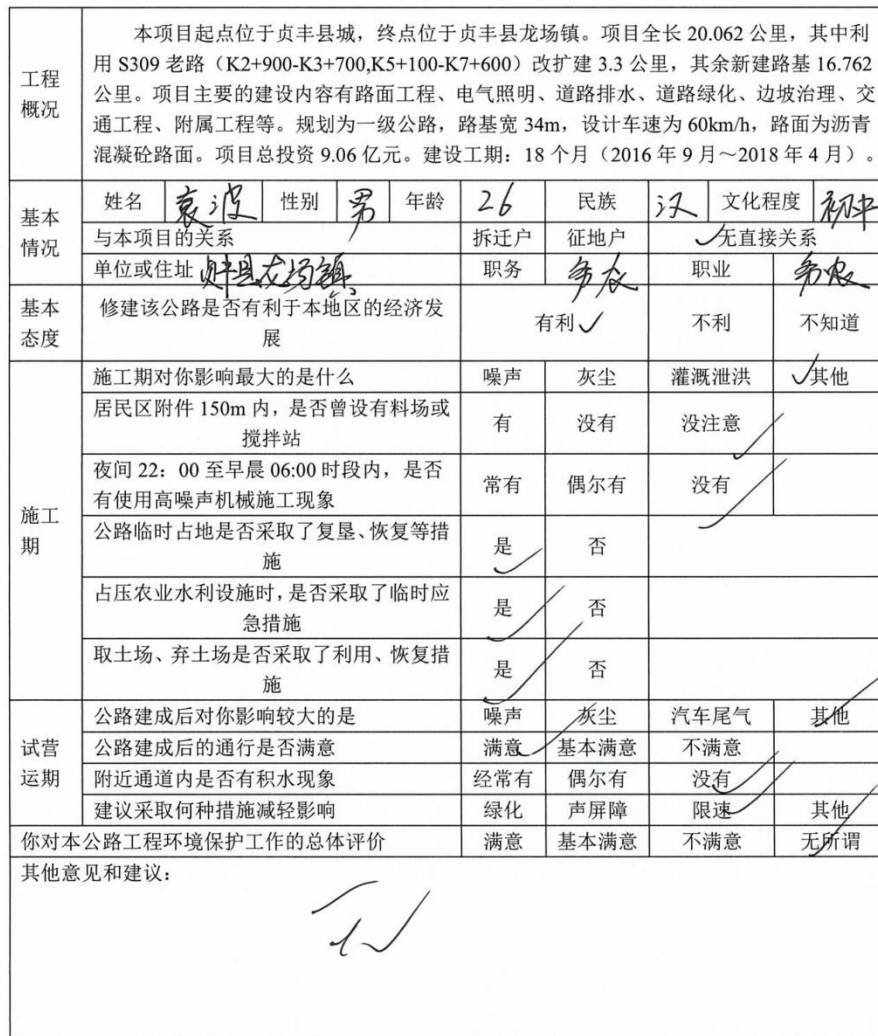 本项目起点位于贞丰县城，终点位于贞丰县龙场镇。项目全长 20.062 公里，其中利
用 S309 老路（K2+900-K3+700,K5+100-K7+600）改扩建 3.3 公里，其余新建路基 16.762
工程概况 公里。项目主要的建设内容有路面工程、电气照明、道路排水、道路绿化、边坡治理、交
通工程、附属工程等。规划为一级公路，路基宽 34m，设计车速为 60km/h，路面为沥青
混凝砼路面。项目总投资 9.06 亿元。建设工期：18 个月（2016 年 9 月～2018 年 4 月）。
基本情况 姓名 袁波 性别 男 年龄 26 民族 汉 文化程度 初中
与本项目的关系 拆迁户 征地户 ✓无直接关系
单位或住址 贞丰县龙场镇 职务 务农 职业 务农
基本态度 修建该公路是否有利于本地区的经济发
展 有利✓ 不利 不知道
施工期 施工期对你影响最大的是什么 噪声 灰尘 灌溉泄洪 ✓其他
居民区附件 150m 内，是否曾设有料场或
搅拌站 有 没有 没注意 ✓
夜间 22：00 至早晨 06:00 时段内，是否
有使用高噪声机械施工现象 常有 偶尔有 没有 ✓
公路临时占地是否采取了复垦、恢复等措
施 是 ✓ 否
占压农业水利设施时，是否采取了临时应
急措施 是 ✓ 否
取土场、弃土场是否采取了利用、恢复措
施 是 ✓ 否
试营运期 公路建成后对你影响较大的是 噪声 灰尘 汽车尾气 其他 ✓
公路建成后的通行是否满意 满意 ✓ 基本满意 不满意
附近通道内是否有积水现象 经常有 偶尔有 没有 ✓
建议采取何种措施减轻影响 绿化 声屏障 限速 ✓ 其他
你对本公路工程环境保护工作的总体评价 满意 基本满意 不满意 无所谓 ✓
其他意见和建议：
无